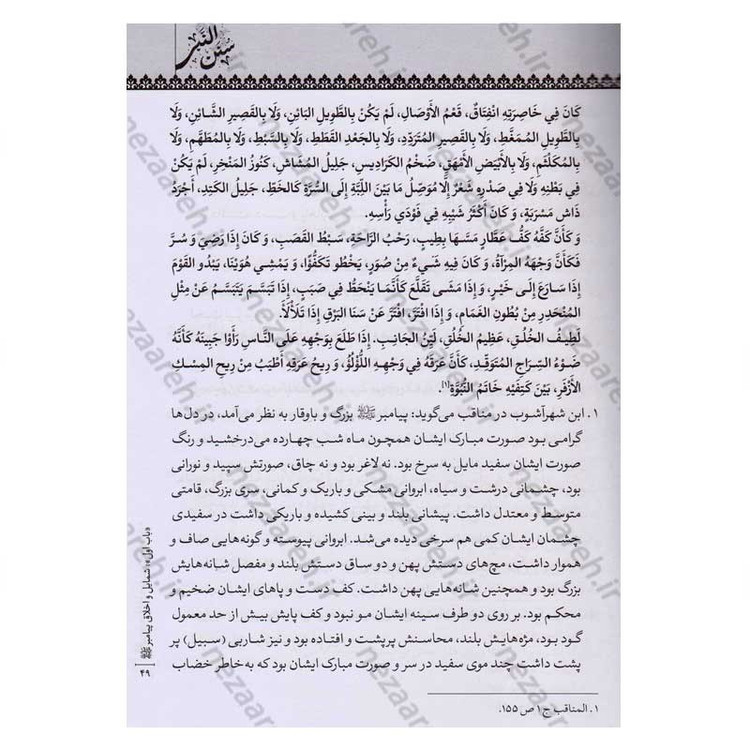 سنن النبی
كَانَ فِي خَاصِرَتِهِ انْفِتَاقٌ، فَعْمُ الْأَوْصَالِ، لَمْ يَكُنْ بِالطَّوِيلِ الْبَائِنِ، وَلَا بِالْقَصِيرِ الشَّائِنِ، وَلَا
بِالطَّوِيلِ الْمُمَغَّطِ، وَلَا بِالْقَصِيرِ الْمُتَرَدِّدِ، وَلَا بِالْجَعْدِ الْقَطَطِ، وَلَا بِالسَّبْطِ، وَلَا بِالْمُطَهَّمِ، وَلَا
بِالْمُكَلْثَمِ، وَلَا بِالْأَبْيَضِ الْأَمْهَقِ، ضَخْمُ الْكَرَادِيسِ، جَلِيلُ الْمُشَاشِ، كَنُوزُ الْمَنْخِرِ، لَمْ يَكُنْ
فِي بَطْنِهِ وَلَا فِي صَدْرِهِ شَعْرٌ إِلَّا مُوَصَلٌ مَا بَيْنَ اللَّبَّةِ إِلَى السُّرَّةِ كَالْخَطِّ، جَلِيلُ الْكَتِدِ، أَجْرَدُ
ذَاشِ مَسْرَبَةٍ، وَ كَانَ أَكْثَرُ شَيْبِهِ فِي فَوْدَي رَأْسِهِ.
وَ كَأَنَّ كَفَّهُ كَفُّ عَطَّارٍ مَسَّهَا بِطِيبٍ، رَحْبُ الرَّاحَةِ، سَبْطُ الْقَصَبِ، وَ كَانَ إِذَا رَضِيَ وَ سُرَّ
فَكَأَنَّ وَجْهَهُ الْمِرْآةُ، وَ كَانَ فِيهِ شَيْءٌ مِنْ صُوَرٍ، يَخْطُو تَكَفُّؤًا، وَ يَمْشِي هُوَيْنَا، يَبْدُو الْقَوْمَ
إِذَا سَارَعَ إِلَى خَيْرٍ، وَ إِذَا مَشَى تَقَلَّعَ كَأَنَّمَا يَنْحَطُّ فِي صَبَبٍ، إِذَا تَبَسَّمَ يَتَبَسَّمُ عَنْ مِثْلِ
الْمُنْحَدِرِ مِنْ بُطُونِ الْغَمَامِ، وَ إِذَا افْتَرَّ، افْتَرَّ عَنْ سَنَا الْبَرْقِ إِذَا تَلَأْلَأَ.
لَطِيفُ الْخُلُقِ، عَظِيمُ الْخُلُقِ، لَيِّنُ الْجَانِبِ. إِذَا طَلَعَ بِوَجْهِهِ عَلَى النَّاسِ رَأَوْا جَبِينَهُ كَأَنَّهُ
ضَوْءُ السِّرَاجِ الْمُتَوَقِّدِ، كَأَنَّ عَرَقَهُ فِي وَجْهِهِ اللُّؤْلُؤُ، وَ رِيحُ عَرَقِهِ أَطْيَبُ مِنْ رِيحِ الْمِسْكِ
الْأَزْفَرِ، بَيْنَ كَتِفَيْهِ خَاتَمُ النُّبُوَّةِ[۱].
۱. ابن شهرآشوب در مناقب می‌گوید: پیامبر ﷺ بزرگ و باوقار به نظر می‌آمد، در دل‌ها
گرامی بود صورت مبارک ایشان همچون ماه شب چهارده می‌درخشید و رنگ
صورت ایشان سفید مایل به سرخ بود. نه لاغر بود و نه چاق، صورتش سپید و نورانی
بود، چشمانی درشت و سیاه، ابروانی مشکی و باریک و کمانی، سری بزرگ، قامتی
متوسط و معتدل داشت. پیشانی بلند و بینی کشیده و باریکی داشت در سفیدی
چشمان ایشان کمی هم سرخی دیده می‌شد. ابروانی پیوسته و گونه‌هایی صاف و
هموار داشت، مچ‌های دستش پهن و دو ساق دستش بلند و مفصل شانه‌هایش
بزرگ بود و همچنین شانه‌هایی پهن داشت. کف دست و پاهای ایشان ضخیم و
محکم بود. بر روی دو طرف سینه ایشان مو نبود و کف پایش بیش از حد معمول
گود بود، مژه‌هایش بلند، محاسنش پرپشت و افتاده بود و نیز شاربی (سبیل) پر
پشت داشت چند موی سفید در سر و صورت مبارک ایشان بود که به خاطر خضاب
۱. المناقب ج ۱ ص ۱۵۵.
«باب اول»: شمایل و اخلاق پیامبر ﷺ
۴۹
nezaareh.ir